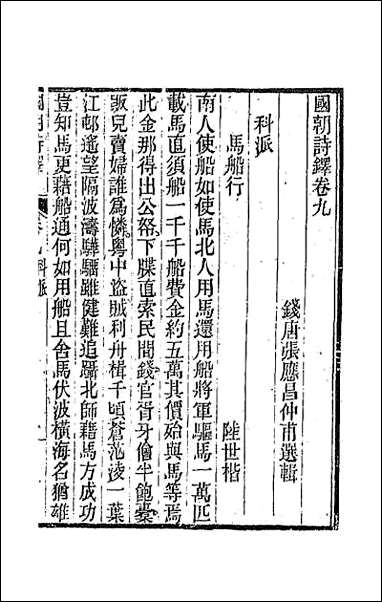 國朝詩鐸卷九
錢唐張應昌仲甫選輯
科派
馬船行　陸世楷
南人使船如使馬北人用馬還用船將軍驅馬一萬匹
載馬直須船一千千船費金約五萬其價始與馬等焉
此金那得出公帑下牒直索民間錢官胥牙儈半飽橐
販兒賣婦誰爲憐粵中盜賊利舟楫千頃蒼茫淩一葉
江邨遙望隔波濤驊騮雖健難追躡北師藉馬方成功
豈知馬更藉船通何如用船且舍馬伏波橫海名猶雄
國朝詩鐸　卷九科派